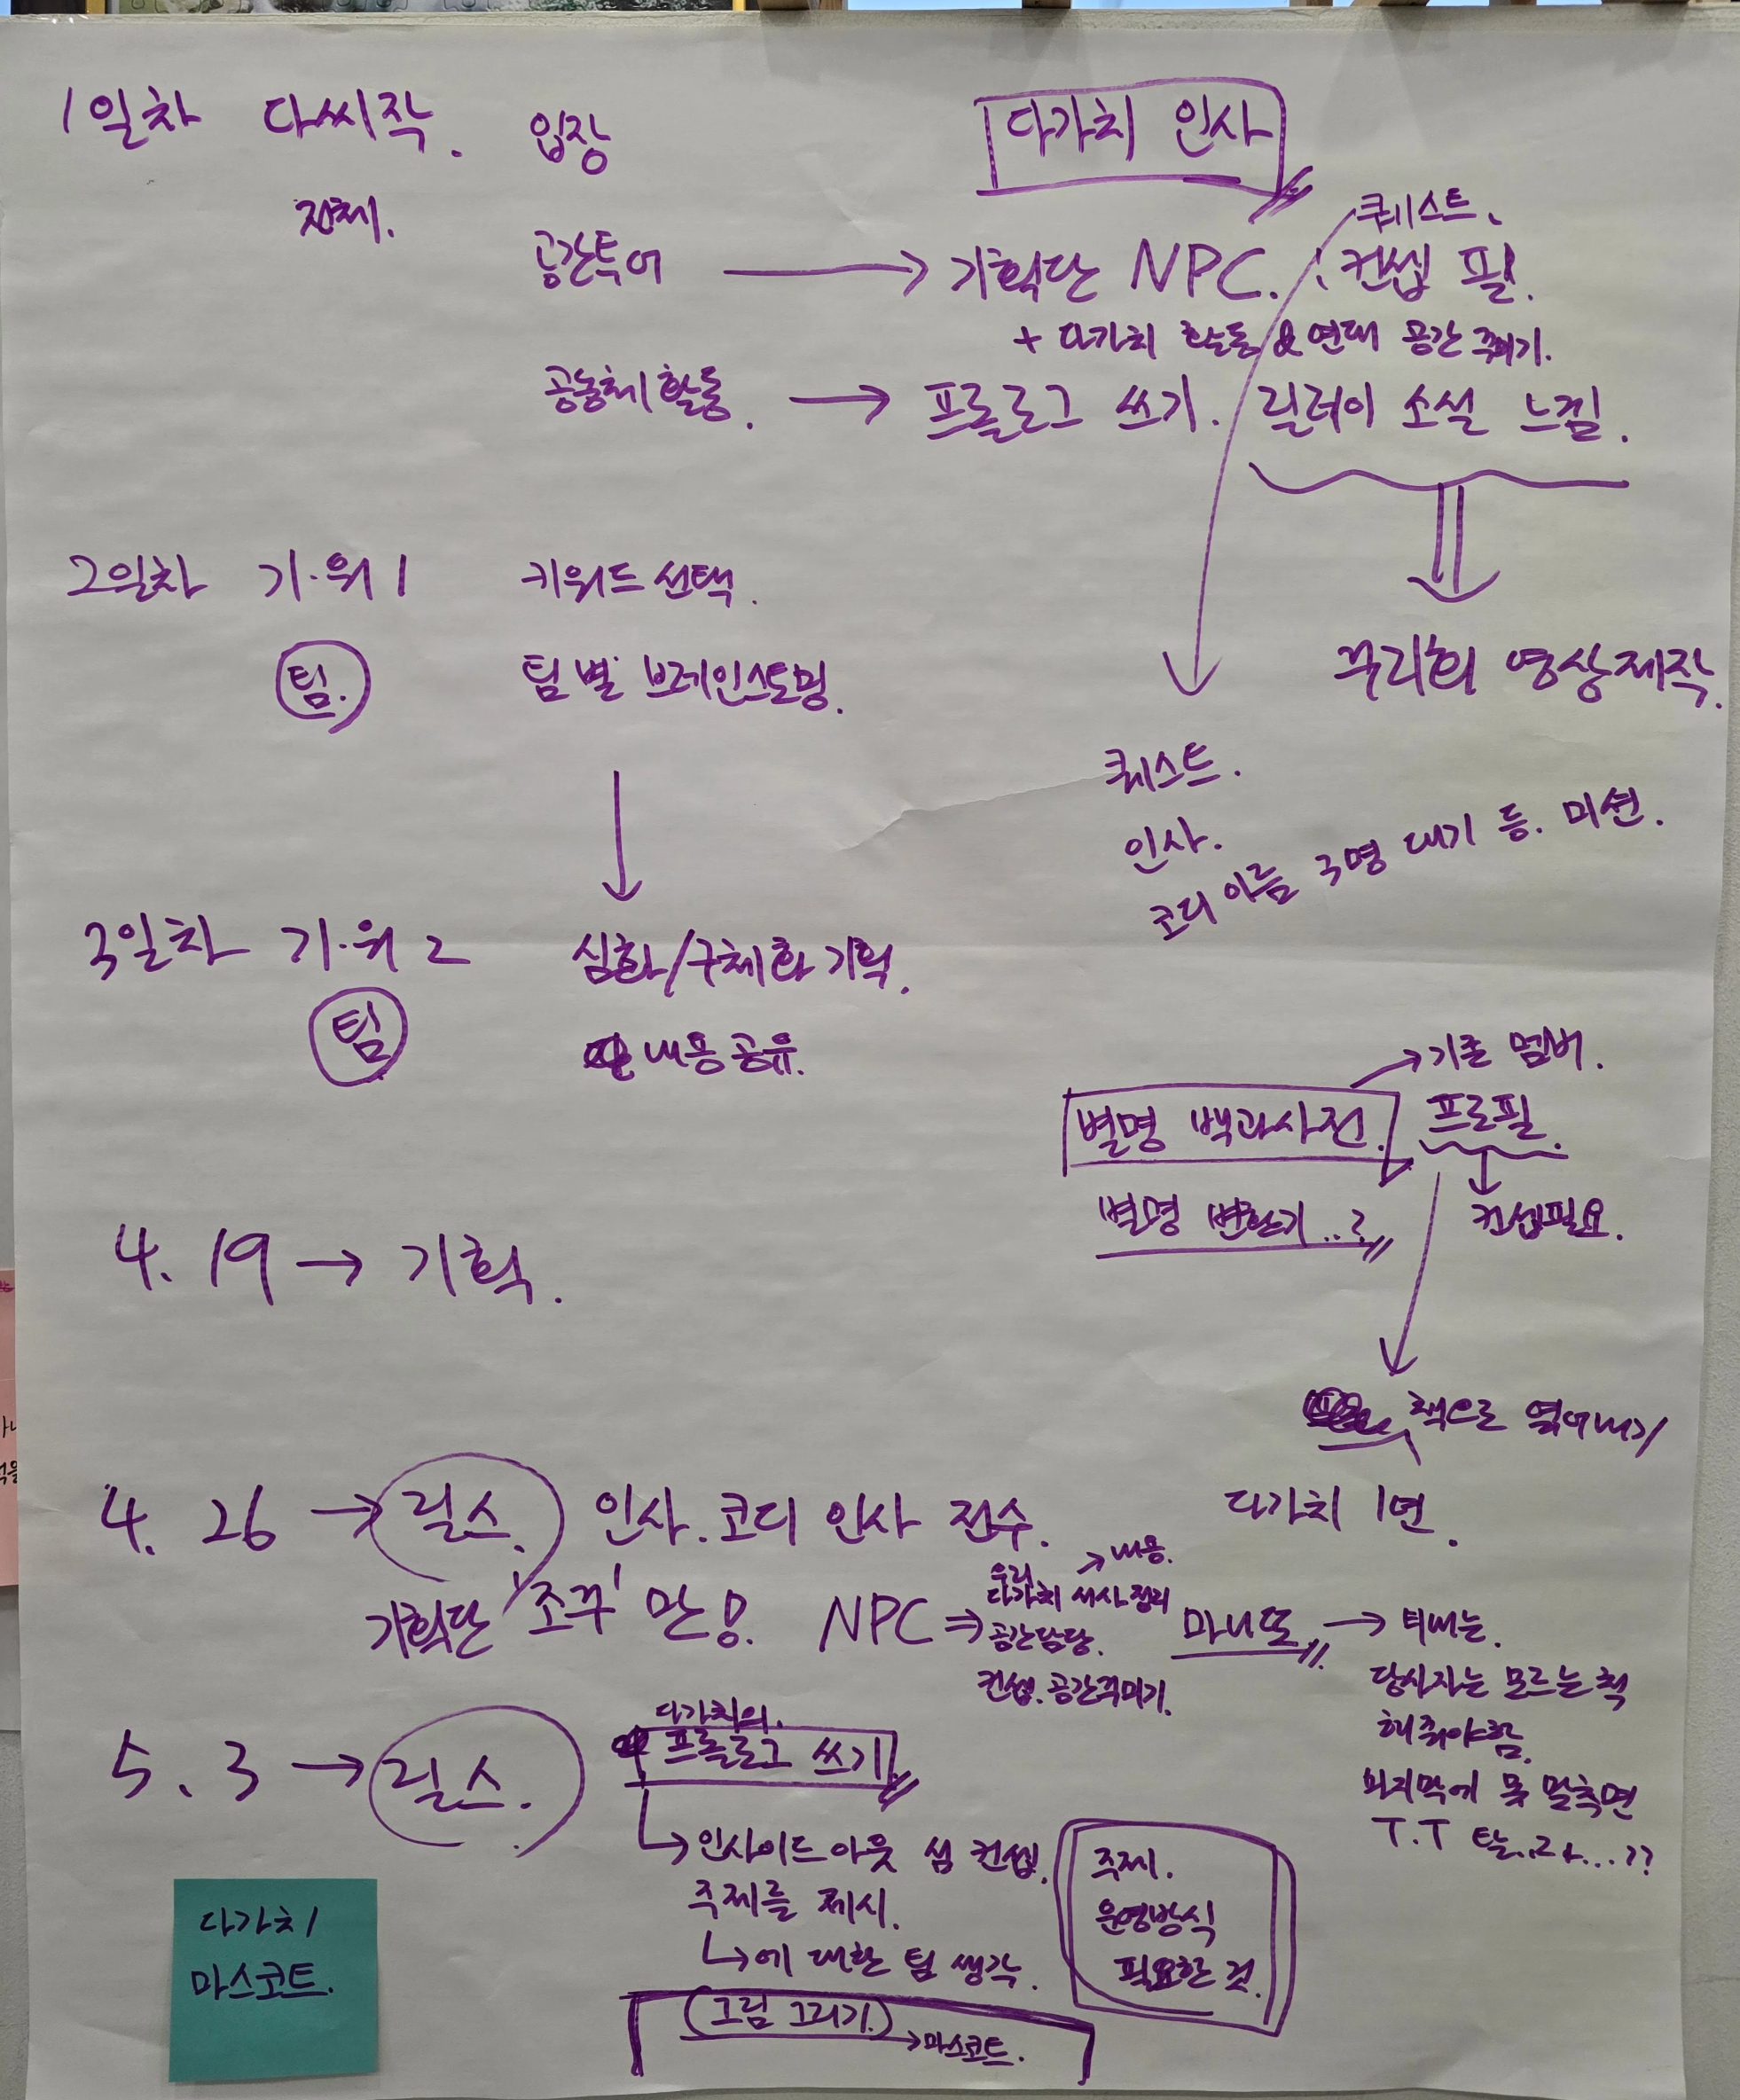 1일차 다씨작. 입장
다가치 인사
전체.
퀘스트.
공간투어 → 기획단 NPC. 컨셉 필.
+ 다가치 활동 & 연대 공간 꾸미기.
공동체 활동. → 프롤로그 쓰기. 릴레이 소설 느낌.
2일차 기·워 1 키워드 선택.
팀. 팀별 브레인스토밍.
꾸리회 영상제작.
퀘스트.
인사.
코디 이름 3명 대기 등. 미션.
3일차 기·워 2 심화/구체화 기획.
팀 내용 공유.
→ 기존 멤버.
별명 백과사전. 프로필.
별명 변환기..? 컨셉필요.
4. 19 → 기획.
책으로 엮어내기
다가치 1면.
4. 26 → 릴스. 인사. 코디 인사 전수.
→ 내용.
우리
다가치 서사 정리
기획단 '조꾸' 만 NPC ⇒ 공간담당.
컨셉. 공간꾸미기.
마니또 → 티내는.
당사자는 모르는 척
해줘야함.
마지막에 못 맞추면
T.T
다가치의.
5. 3 → 릴스. 프롤로그 쓰기
→ 인사이드 아웃 섬 컨셉.
주제를 제시.
→ 에 대한 팀 생각.
주제.
운영방식
필요한 것.
(그림 그리기.) → 마스코트.
다가치
마스코트.